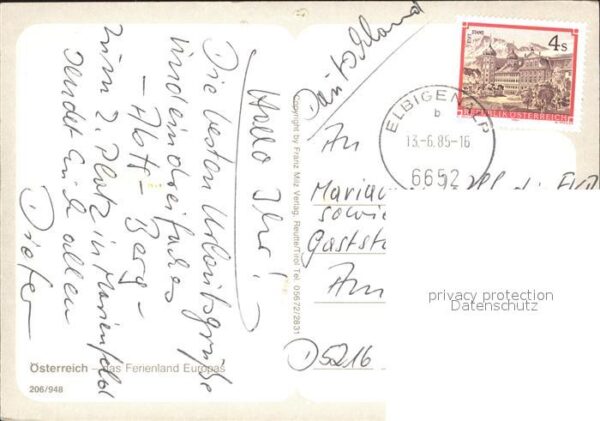 Hallo Ihr!
Die besten Urlaubsgrüße
und ein dreifaches
- Abts - Berg -
zum 2. Platz in Marienfeld
sendet Euch allen
Dieter
Österreich - das Ferienland Europas
206/948
Copyright by Franz Milz Verlag, Reutte/Tirol Tel. 05672/2831
Deutschland
STAMS
4s
REPUBLIK ÖSTERREICH
ELBIGENALP
b
13.-6.85-16
6652
An
sowie
Am
D5216
privacy protection
Datenschutz